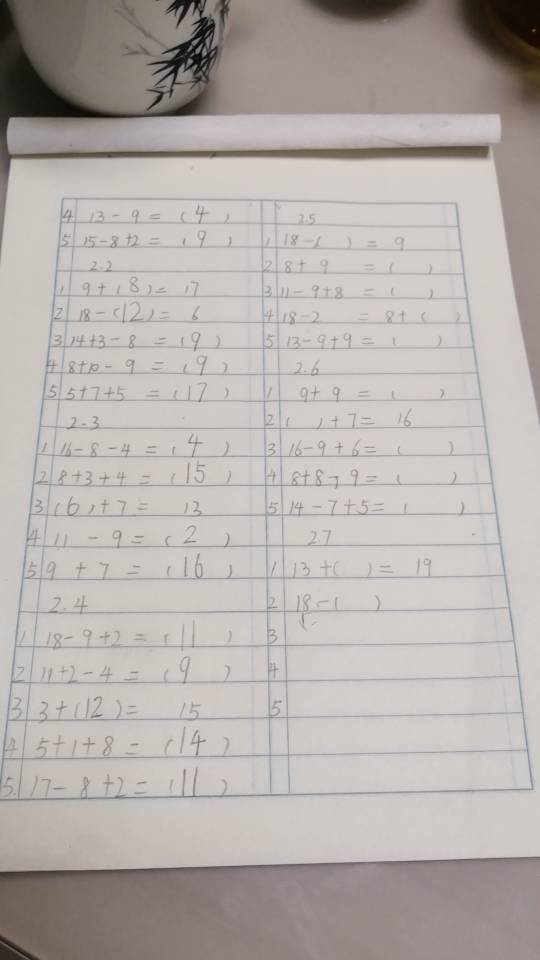 4 13 - 9 = ( 4 )
5 15 - 8 + 2 = ( 9 )
2.2
1 9 + ( 8 ) = 17
2 18 - ( 12 ) = 6
3 14 + 3 - 8 = ( 9 )
4 8 + 10 - 9 = ( 9 )
5 5 + 7 + 5 = ( 17 )
2.3
1 16 - 8 - 4 = ( 4 )
2 8 + 3 + 4 = ( 15 )
3 ( 6 ) + 7 = 13
4 11 - 9 = ( 2 )
5 9 + 7 = ( 16 )
2.4
1 18 - 9 + 2 = ( 11 )
2 11 + 2 - 4 = ( 9 )
3 3 + ( 12 ) = 15
4 5 + 1 + 8 = ( 14 )
5. 17 - 8 + 2 = ( 11 )
2.5
1 18 - ( ) = 9
2 8 + 9 = ( )
3 11 - 9 + 8 = ( )
4 18 - 2 = 8 + ( )
5 13 - 9 + 9 = ( )
2.6
1 9 + 9 = ( )
2 ( ) + 7 = 16
3 16 - 9 + 6 = ( )
4 8 + 8 - 9 = ( )
5 14 - 7 + 5 = ( )
2.7
1 13 + ( ) = 19
2 18 - ( )
3
4
5